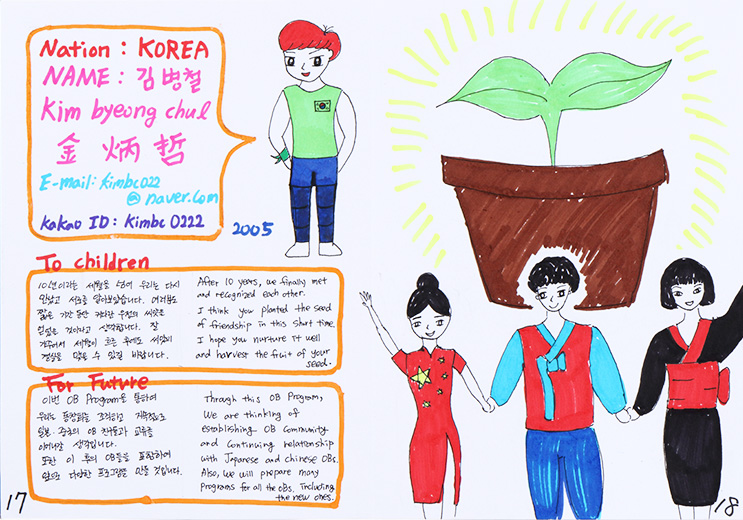 Nation : KOREA
NAME : 김병철
Kim byeong chul
金 炳 哲
E-mail: kimbc022
@ naver.com
kakao ID : Kimbc 0222
2005
To children
10년이라는 세월을 넘어 우리는 다시
만났고 서로를 알아보았습니다. 여러분도
짧은 기간 동안 커다란 우정의 씨앗을
것이라고 생각합니다. 잘
가꾸어서 세월이
결실을 맺을 수 있길 바랍니다.
After 10 years, we finally met
and recognized each other.
I think you planted the seed
of friendship in this short time.
I hope you nurture it well
and harvest the fruit of your
seed.
For Future
이번 OB Program을 통하여
우리는 조직하고 지속적으로
일본·중국의 OB 친구들과 교류를
이어나갈 생각입니다.
또한 이 후의 OB들을 포함하여
앞으로 다양한 프로그램을 만들 것입니다.
Through this OB Program,
We are thinking of
establishing OB Community
and continuing relationship
with Japanese and chinese OBs.
Also, we will prepare many
programs for all the OBs, Including
the new ones.
17
18